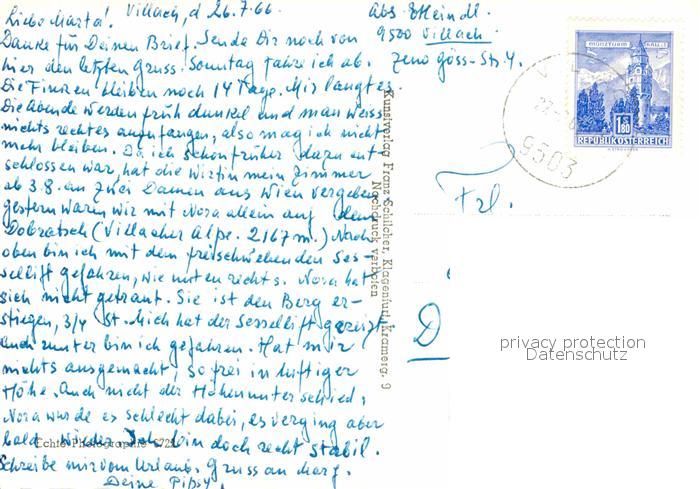 Villach, d 26.7.66.
Liebe Marta!
Danke für Deinen Brief. Sende Dir noch von
hier den letzten Gruss. Sonntag fahre ich ab.
Die Finzen bleiben noch 14 Tage. Mir langt es.
Die Abende werden früh dunkel und man weiss
nichts rechtes anzufangen, also mag ich nicht
mehr bleiben. Da ich schon früher dazu ent-
schlossen war, hat die Wirtin mein Zimmer
ab 3.8. an zwei Damen aus Wien vergeben
gestern waren wir mit Nora allein auf dem
Dobratsch (Villacher Alpe. 2167 m.) Nach
oben bin ich mit dem freischwebenden Ses-
sellift gefahren, wie unten rechts. Nora hat
sich nicht getraut. Sie ist den Berg er-
stiegen, 3/4 St. Mich hat der Sessellift gereizt
auch runter bin ich gefahren. Hat mir
nichts ausgemacht, so frei in luftiger
Höhe. Auch nicht der Höhenunterschied,
Nora wurde es schlecht dabei, es verging aber
bald wieder. Ich bin doch recht stabil.
Schreibe mir vom Urlaub. Gruss an Marg.
Deine Pipsy
Echte Photographie
Abs.
9500 Villach
Zeno Göss-Str. 4.
Kunstverlag Franz Schilcher, Klagenfurt, Kramerg. 9
Nachdruck verboten
MÜNZTURM HALL I.T.
1.80
REPUBLIK ÖSTERREICH
9503
Frl.
D
privacy protection
Datenschutz